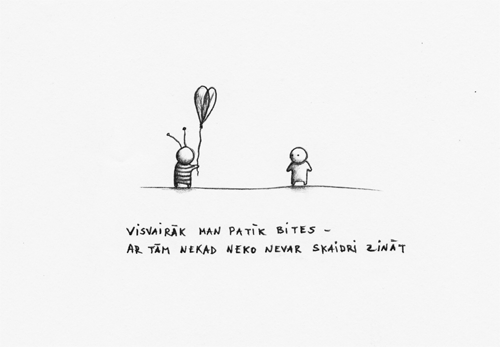 VISVAIRĀK MAN PATĪK BITES –
AR TĀM NEKAD NEKO NEVAR SKAIDRI ZINĀT